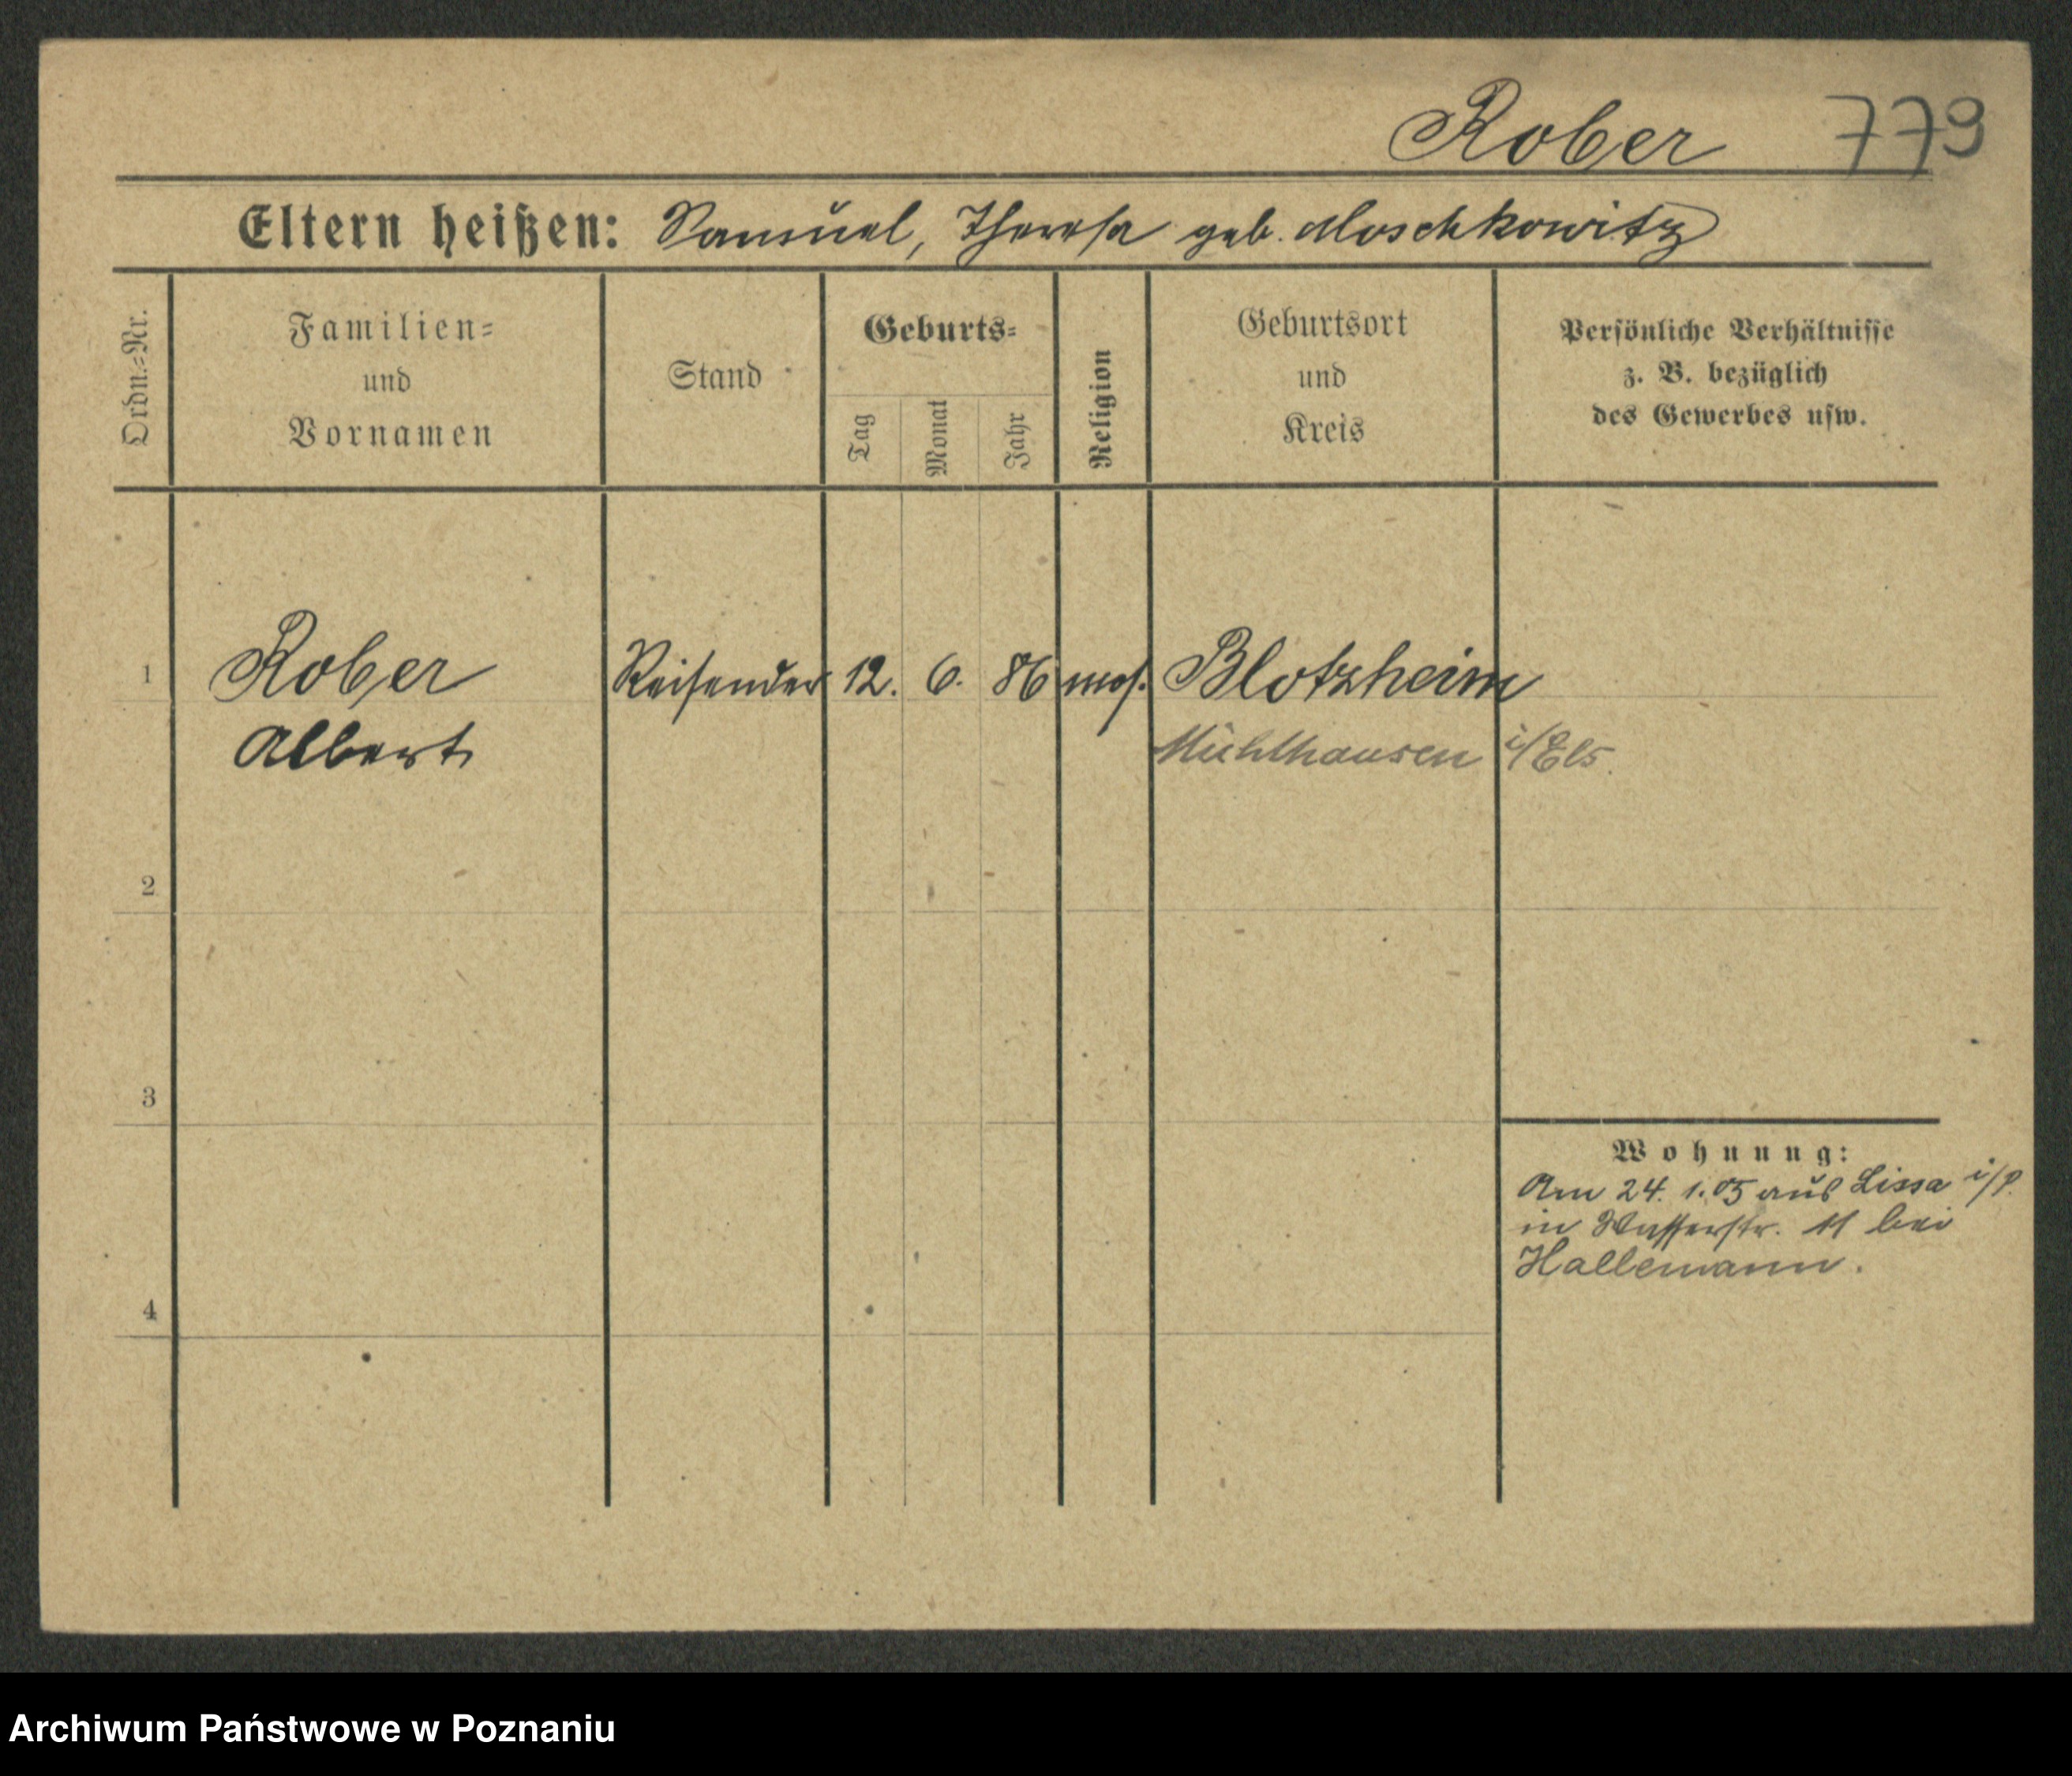 Rober 779
Eltern heißen: Samuel, Theresa geb. Moschkowitz
Ordn.-Nr.
Familien-
und
Vornamen
Stand
Geburts-
Tag
Monat
Jahr
Religion
Geburtsort
und
Kreis
Persönliche Verhältnisse
z. B. bezüglich
des Gewerbes usw.
1 Rober Reisender 12. 6. 86 mos. Blotzheim
Albert Mühlhausen i/Els.
2
3
Wohnung:
Am 24. 1. 05 aus Lissa i/P.
in Wasserstr. 11 bei
Hallemann.
4
Archiwum Państwowe w Poznaniu